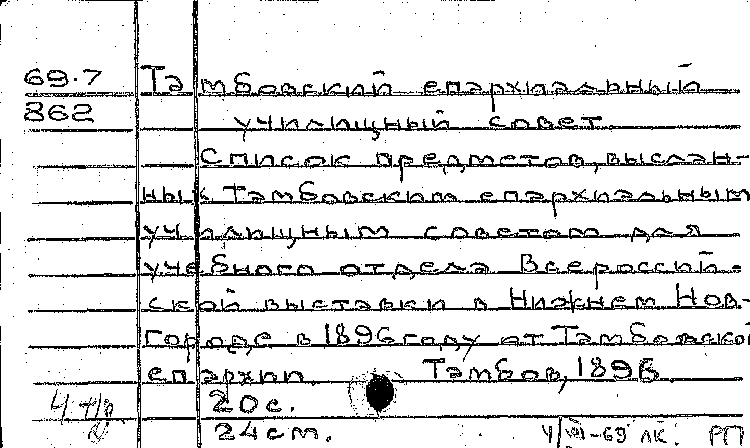 69.7 Тамбовский епархиальный
862 училищный совет.
Список предметов, выслан-
ных Тамбовским епархиальным
училищным советом для
учебного отдела Всероссий-
ской выставки в Нижнем Нов-
городе в 1896 году от Тамбовской
епархии. Тамбов, 1896.
20с.
24см. РП